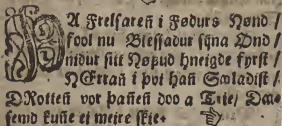 ÞA Frelsareñ i Fødurs Hønd /
sool nu Blessadur sijna Ond /
nidur sitt Høfud hneigde fyrst /
HErrañ i þvi hañ Andadist /
DRotteñ vor þañeñ doo a Trie / Dæ-
semd kuñe ei meire skie.